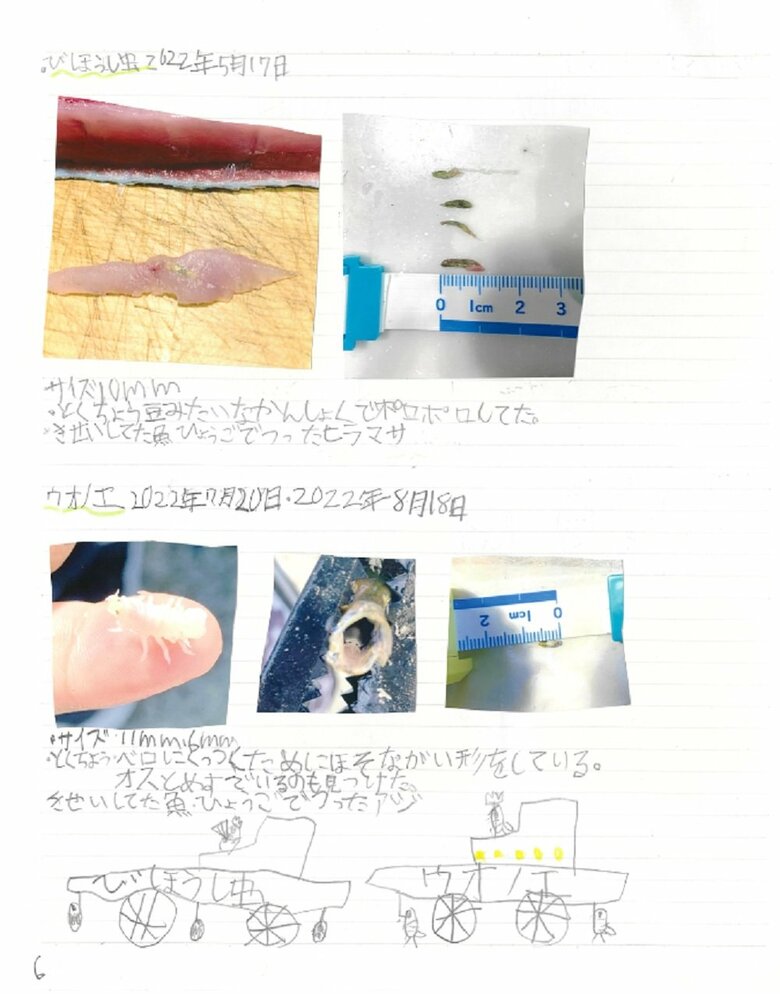 ・びほうし虫 2022年5月17日
0 1cm 2 3
サイズ10mm
・とくちょう豆みたいなかんしょくでポロポロしてた。
・きせいしてた魚 ひょうごでつったヒラマサ
ウオノエ 2022年7月20日・2022年8月18日
0 1cm 2
・サイズ・11mm,6mm
・とくちょう・ベロにくっつくためにほそながい形をしている。
オスとめすでいるのも見つけた。
きせいしてた魚・ひょうごでつったアジ
びほうし虫
ウオノエ
6